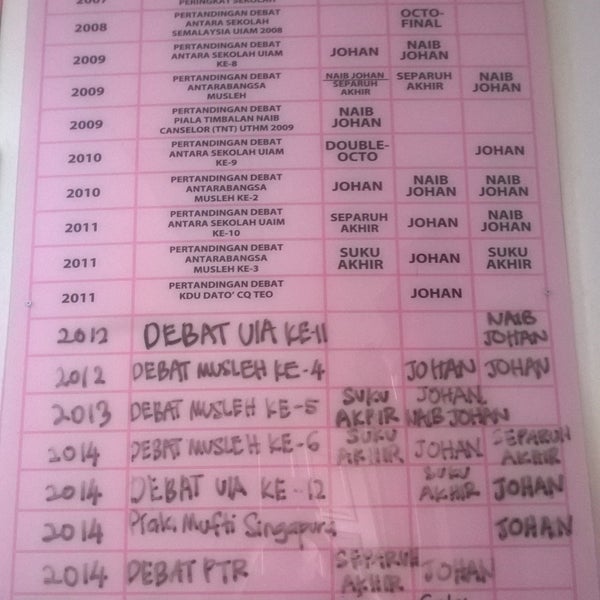 2007 PERINGKAT SEKOLAH
2008 PERTANDINGAN DEBAT ANTARA SEKOLAH SEMALAYSIA UIAM 2008 OCTO-FINAL
2009 PERTANDINGAN DEBAT ANTARA SEKOLAH UIAM KE-8 JOHAN NAIB JOHAN
2009 PERTANDINGAN DEBAT ANTARABANGSA MUSLEH NAIB JOHAN SEPARUH AKHIR SEPARUH AKHIR NAIB JOHAN
2009 PERTANDINGAN DEBAT PIALA TIMBALAN NAIB CANSELOR (TNT) UTHM 2009 NAIB JOHAN
2010 PERTANDINGAN DEBAT ANTARA SEKOLAH UIAM KE-9 DOUBLE-OCTO JOHAN
2010 PERTANDINGAN DEBAT ANTARABANGSA MUSLEH KE-2 JOHAN NAIB JOHAN NAIB JOHAN
2011 PERTANDINGAN DEBAT ANTARA SEKOLAH UAIM KE-10 SEPARUH AKHIR JOHAN NAIB JOHAN
2011 PERTANDINGAN DEBAT ANTARABANGSA MUSLEH KE-3 SUKU AKHIR JOHAN SUKU AKHIR
2011 PERTANDINGAN DEBAT KDU DATO' CQ TEO JOHAN
2012 DEBAT UIA KE-11 NAIB JOHAN
2012 DEBAT MUSLEH KE-4 JOHAN JOHAN
2013 DEBAT MUSLEH KE-5 SUKU AKHIR JOHAN NAIB JOHAN
2014 DEBAT MUSLEH KE-6 SUKU AKHIR JOHAN SEPARUH AKHIR
2014 DEBAT UIA KE-12 SUKU AKHIR JOHAN
2014 Piak. Mufti Singapura JOHAN
2014 DEBAT PTR SEPARUH AKHIR JOHAN